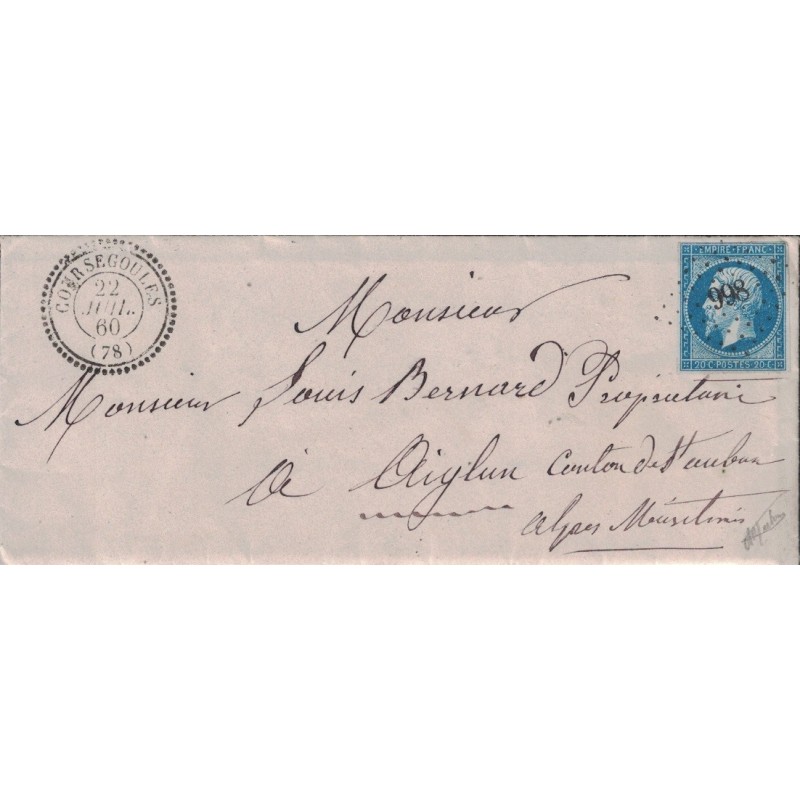 COURSEGOULES
22
JUIL.
60
(78)
EMPIRE FRANC
998
20 C POSTES 20 C
Monsieur
Monsieur Louis Bernard Propriétaire
à Aiglun Canton de St auban
alpes Maritimes